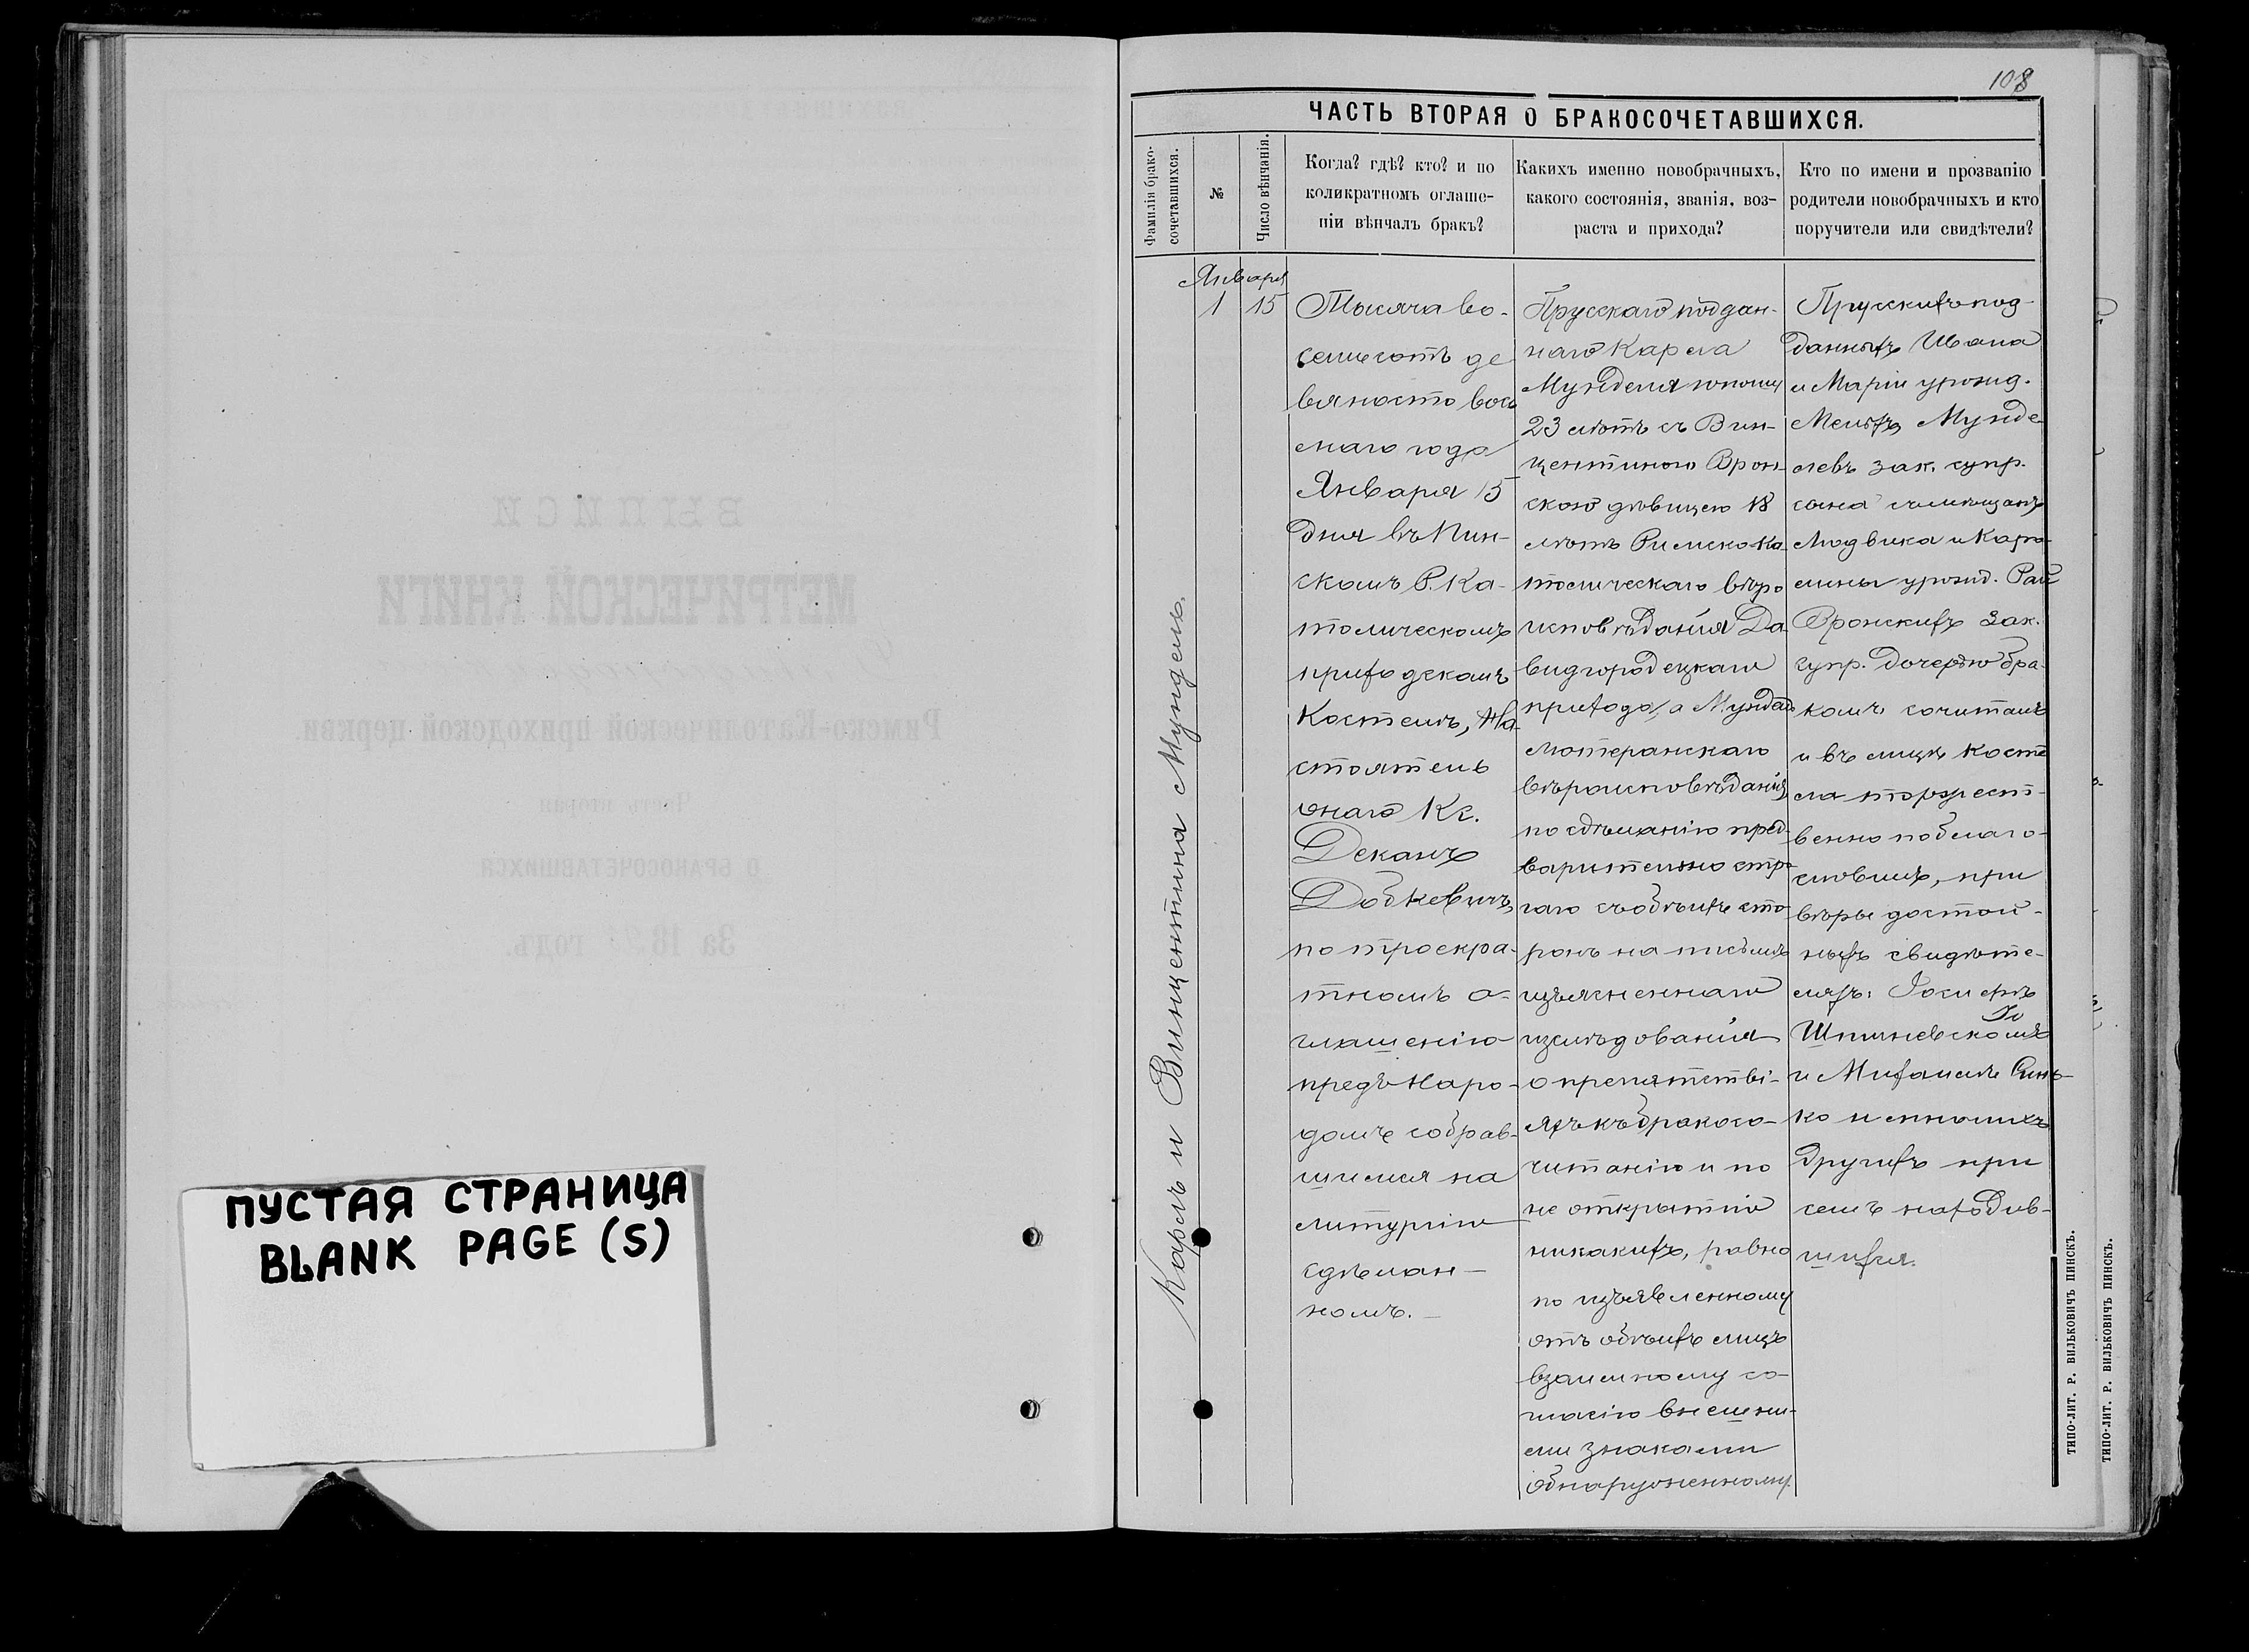 ПУСТАЯ СТРАНИЦА
BLANK PAGE (S)
108
ЧАСТЬ ВТОРАЯ О БРАКОСОЧЕТАВШИХСЯ.
Фамилія брако-
сочетавшихся.
№
Число вѣнчанія.
Когда? гдѣ? кто? и по
коликратномъ оглаше-
ніи вѣнчалъ бракъ?
Какихъ именно новобрачныхъ,
какого состоянія, званія, воз-
раста и прихода?
Кто по имени и прозванію
родители новобрачныхъ и кто
поручители или свидѣтели?
Карлъ и Винцентина Мундель.
Января
1
15
Тысяча во-
семьсотъ де
вяносто вось
маго года
Января 15
дня въ Пин-
скомъ Р. Ка-
толическомъ
приходскомъ
Костелѣ, На-
стоятель
онаго Кс.
Деканъ
Добкевичъ,
по троекра-
тномъ о-
глашенію
предъ наро-
домъ собрав-
шимся на
литургію
сдѣлан-
номъ.
Прусскаго поддан-
наго Карла
Мунделя юношу
23 лѣтъ съ Вин-
центиною Врон-
скою дѣвицею 18
лѣтъ Римско-Ка-
толическаго вѣро
исповѣданія Да-
видгородецкаго
прихода, а Мундель
лютеранскаго
вѣроисповѣданія
по сдѣланію пред-
варительно стро
гаго съ обѣихъ сто
ронъ на письмѣ
изъясненнаго
изслѣдованія
о препятстві-
яхъ къ бракосо-
читанію и по
не открытію
никакихъ, равно
по изъявленному
отъ обѣихъ лицъ
взаимному со-
гласію внешни-
ми знаками
обнаруженному.
Прусскихъ под-
данныхъ Ивана
и Маріи урожд.
Мунде
левъ зак. супр.
сына съ мѣщанъ
Людвика и Каро-
лины урожд. Рай
Вронскихъ зак.
супр. дочерью бра-
комъ сочиталъ
и въ лицѣ Косте
ла торжест-
венно поблаго-
словилъ, при
вѣры достой-
ныхъ свидѣте-
ляхъ:
и Михаилѣ Синь-
ко и многихъ
другихъ при
семъ находив-
шихся.
ТИПО-ЛИТ. Р. ВИЛЬКОВИЧЪ ПИНСКЪ.
ТИПО-ЛИТ. Р. ВИЛЬКОВИЧЪ ПИНСКЪ.